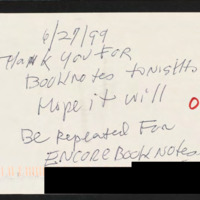 6/27/99
Thank you for
Booknotes tonight
Hope it will
Be Repeated For
ENCORE BOOKNOTES